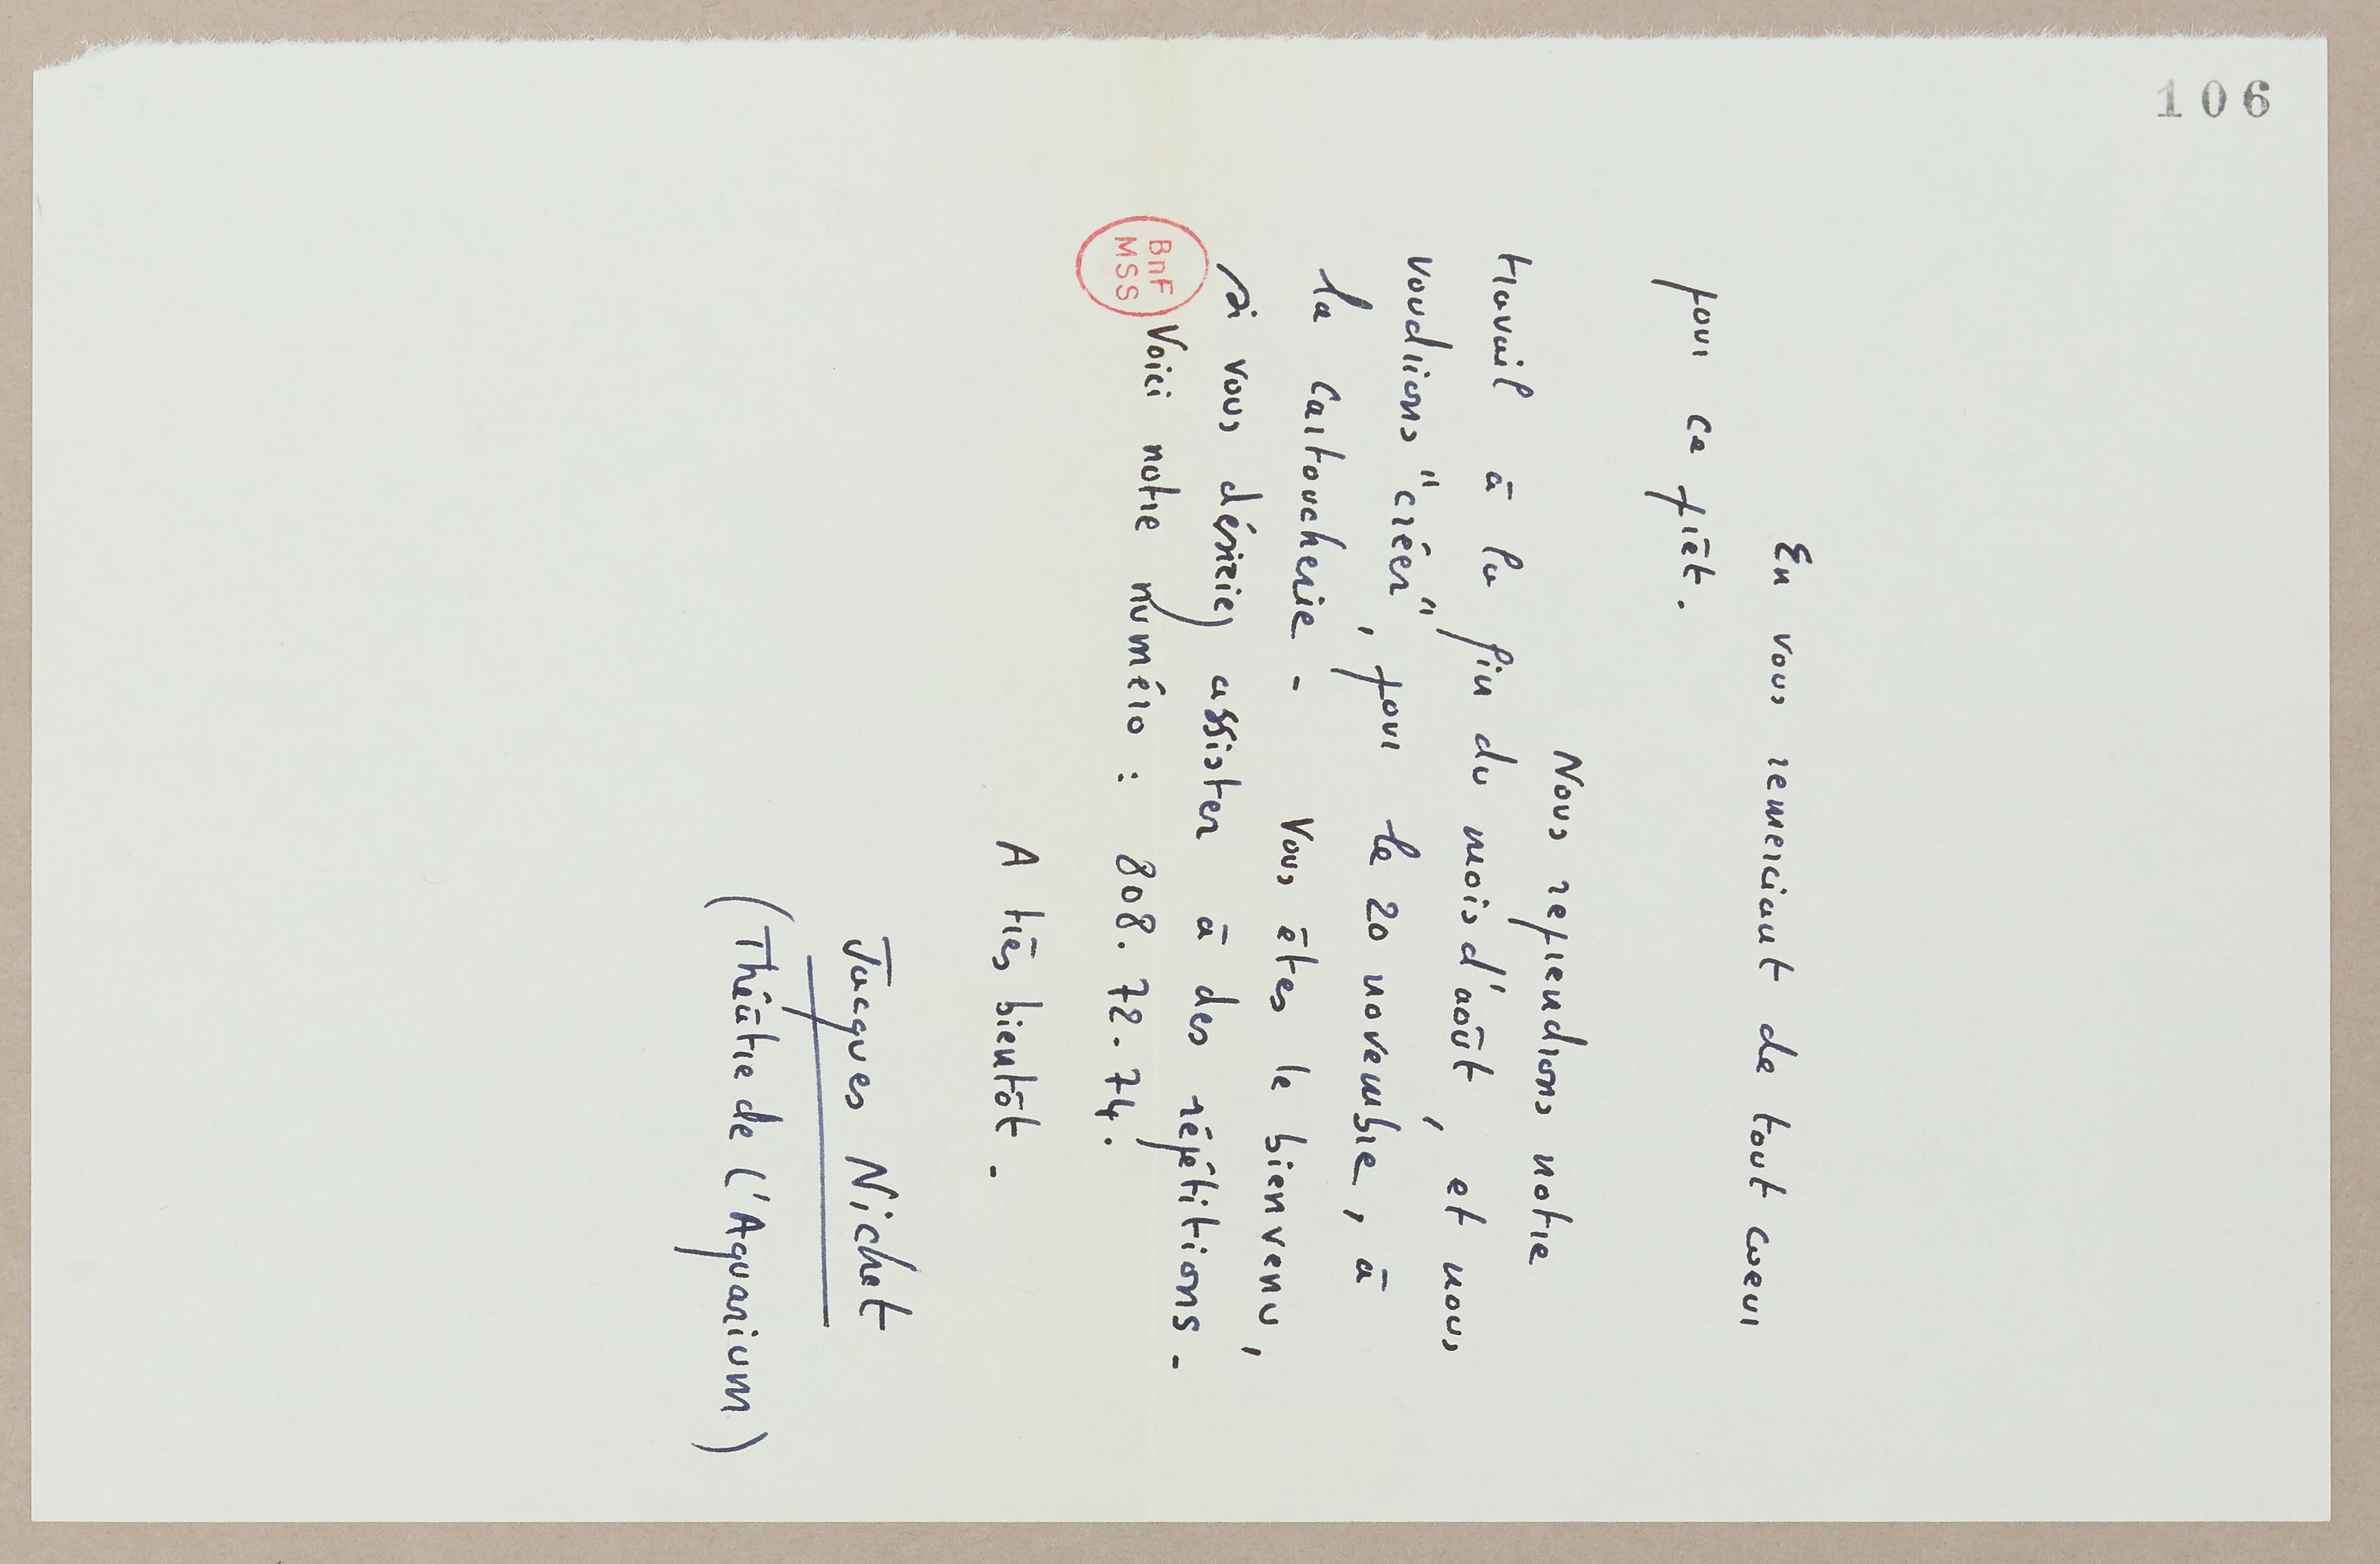 106
En vous remerciant de tout coeur
pour ce prêt.
Nous reprendrons notre
travail à la fin du mois d'août, et nous
voudrions "créer", pour le 20 novembre, à
la Cartoucherie - Vous êtes le bienvenu,
si vous désiriez assister à des répétitions -
Voici notre numéro : 808.72.74.
BnF
MSS
A très bientôt -
Jacques Nichet
(Théâtre de l'Aquarium)